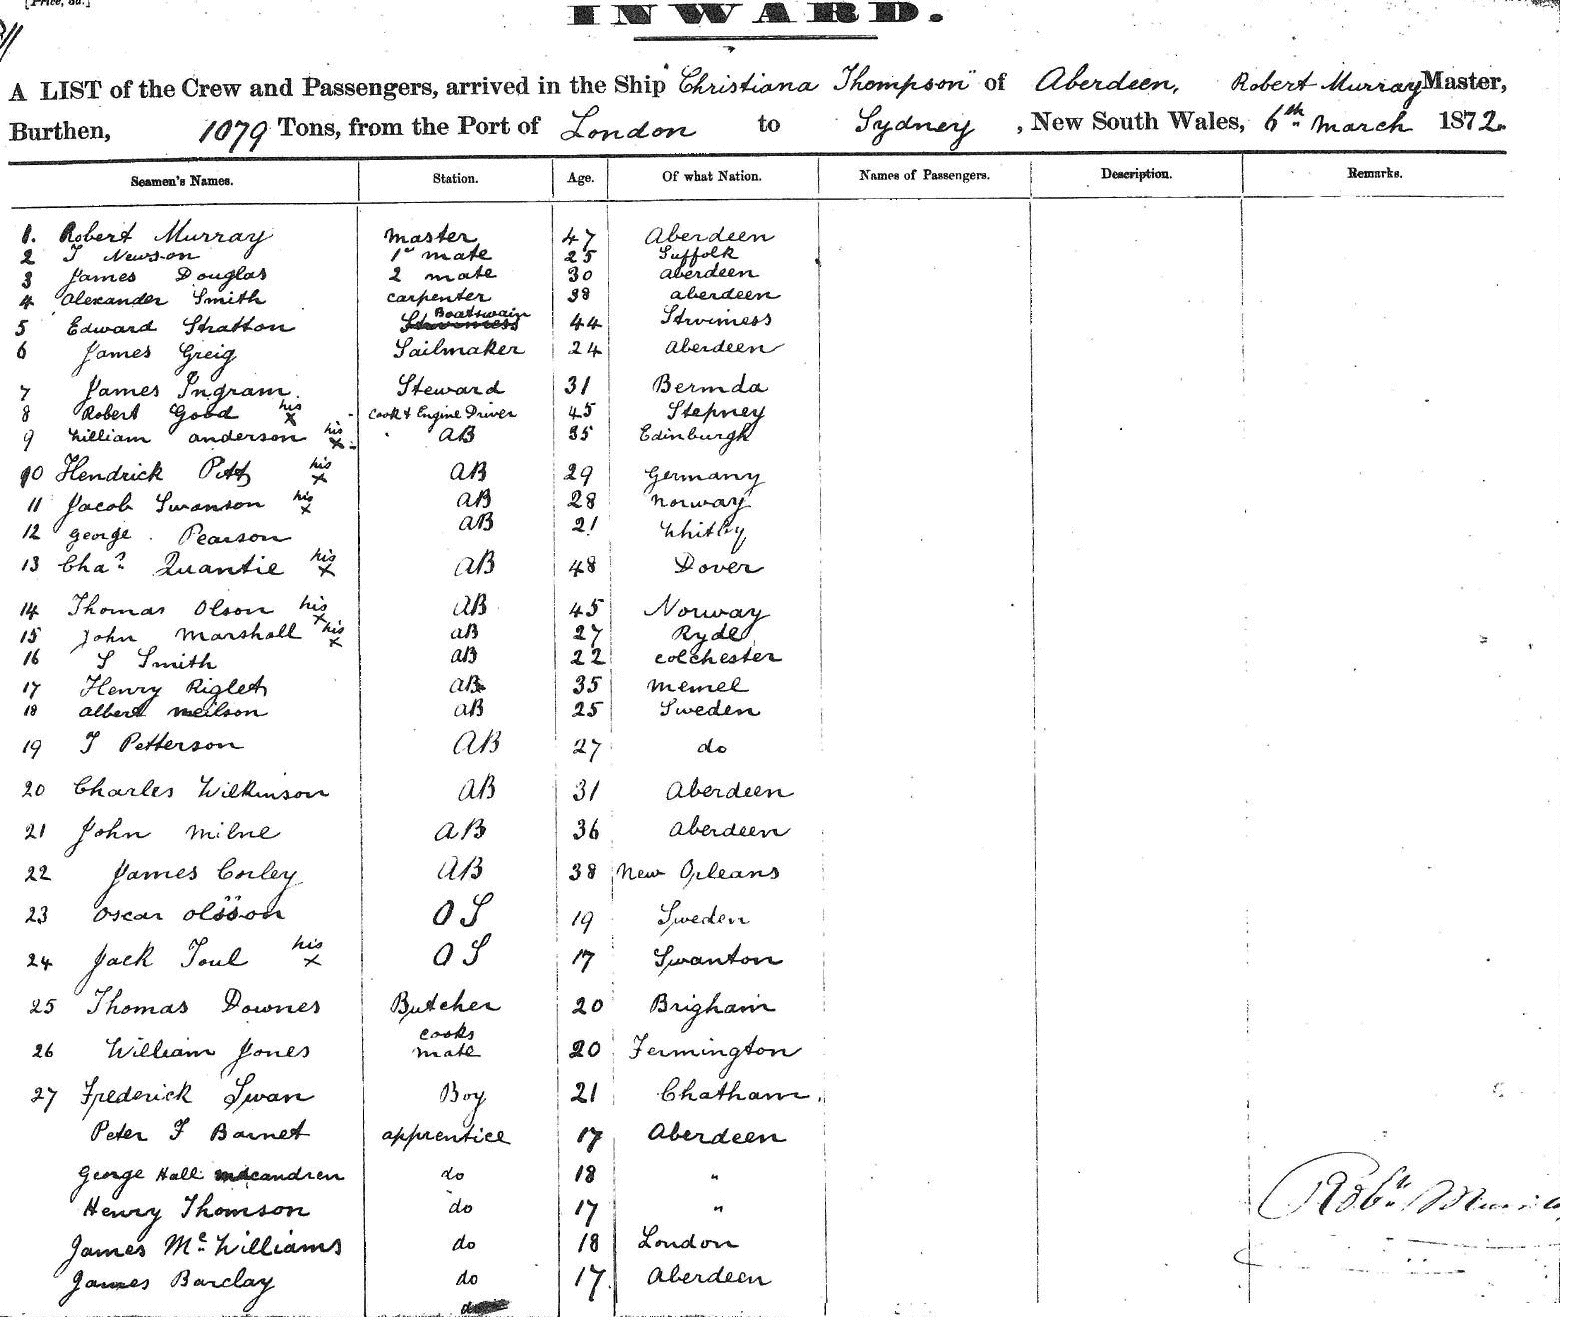 [Price, 6d.]
INWARD.
A LIST of the Crew and Passengers, arrived in the Ship "Christiana Thompson" of Aberdeen, Robert Murray Master,
Burthen, 1079 Tons, from the Port of London to Sydney, New South Wales, 6th March 1872.
Seamen's Names. Station. Age. Of what Nation. Names of Passengers. Description. Remarks.
1. Robert Murray master 47 Aberdeen
2 T Newson 1st mate 25 Suffolk
3 James Douglas 2 mate 30 aberdeen
4 Alexander Smith carpenter 38 aberdeen
5 Edward Stratton Boatswain 44 Stromness
6 James Greig Sailmaker 24 aberdeen
7 James Ingram. Steward 31 Bermda
8 Robert Good his x cook & Engine Driver 45 Stepney
9 William anderson his x AB 35 Edinburgh
10 Hendrick his x AB 29 Germany
11 Jacob Swanson his x AB 28 Norway
12 George Pearson AB 21 Whitby
13 Chas Quantie his x AB 48 Dover
14 Thomas Olson his x AB 45 Norway
15 John Marshall his x AB 27 Ryde
16 S Smith AB 22 colchester
17 Henry AB 35 Memel
18 albert neilson AB 25 Sweden
19 T Petterson AB 27 do
20 Charles Wilkinson AB 31 Aberdeen
21 John Milne AB 36 Aberdeen
22 James Corley AB 38 New Orleans
23 Oscar olsson OS 19 Sweden
24 Jack Toul his x OS 17 Swanton
25 Thomas Downes Butcher 20 Brigham
26 William Jones cooks mate 20 Fermington
27 Frederick Swan Boy 21 Chatham.
Peter F Barnet apprentice 17 Aberdeen
George Hall macandren do 18 "
Henry Thomson do 17 "
James Mc Williams do 18 London
James Barclay do 17 Aberdeen
do
Robt Murray